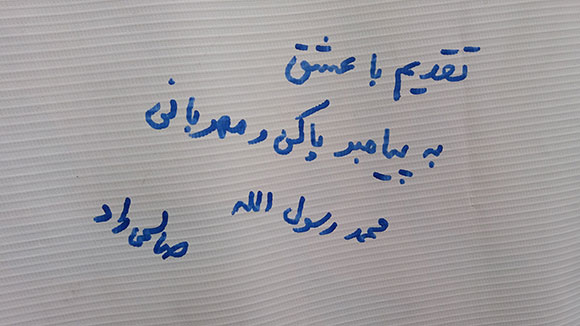 تقدیم با عشق
به پیامبر پاکی و مهربانی
محمد رسول الله
صالحی راد